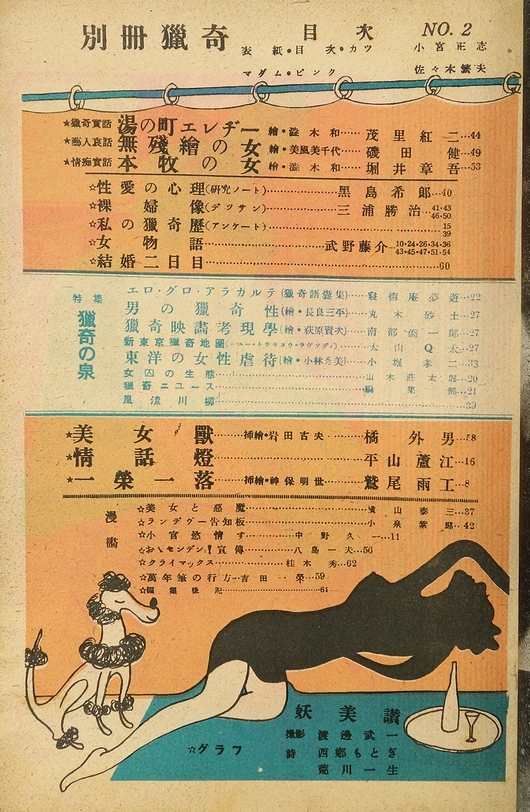 別冊獵奇 目次 NO. 2
表紙・目次・カツ 小宮正志
マダム・ピンク 佐々木繁夫
★獵奇實話 湯の町エレヂー 繪・澁木和……茂里紅二…44
★藝人哀話 無殘繪の女 繪・美風美千代……磯田健…49
★情痴實話 本牧の女 繪・澁木和……堀井章吾…53
☆性愛の心理(研究ノート)……黑島希郎…40
☆裸婦像(デツサン)……三浦勝治…41・43 46・50
☆私の獵奇歷(アンケート)……15 39
☆女物語……武野藤介…10・24・26・34・36 43・45・47・51・54
☆結婚二日目……60
特集 獵奇の泉
エロ・グロ・アラカルテ(獵奇語彙集)…夢遊…22
男の獵奇性(繪・長良三平)…丸木砂土…27
獵奇映畫考現學(繪・荻原賢次)…南部僑一郎…27
新東京獵奇地圖 …大山Q太…27
東洋の女性虐待(繪・小林秀美)…小堀孝二…33
女囚の生態……山木莊太郎…20
獵奇ニユース……編集部…21
風流川柳……39
★美女獸……挿繪・岩田古夫……橘外男…58
★情話燈……平山蘆江…16
★一榮一落……挿繪・神保明世…鷲尾雨工…8
漫畫
☆美女と惡魔……泰三…37
☆ランデヴー告知板……小泉紫郎…42
☆小官慾情す……中野久一…11
☆おゝセンデン!宣傳……八島一夫…56
☆クライマックス……桂木秀…62
☆萬年筆の行方…吉田一榮…59
☆編集後記……61
妖美讃
☆グラフ
撮影 渡邊武一
詩 西鄕もとぎ
荒川一生